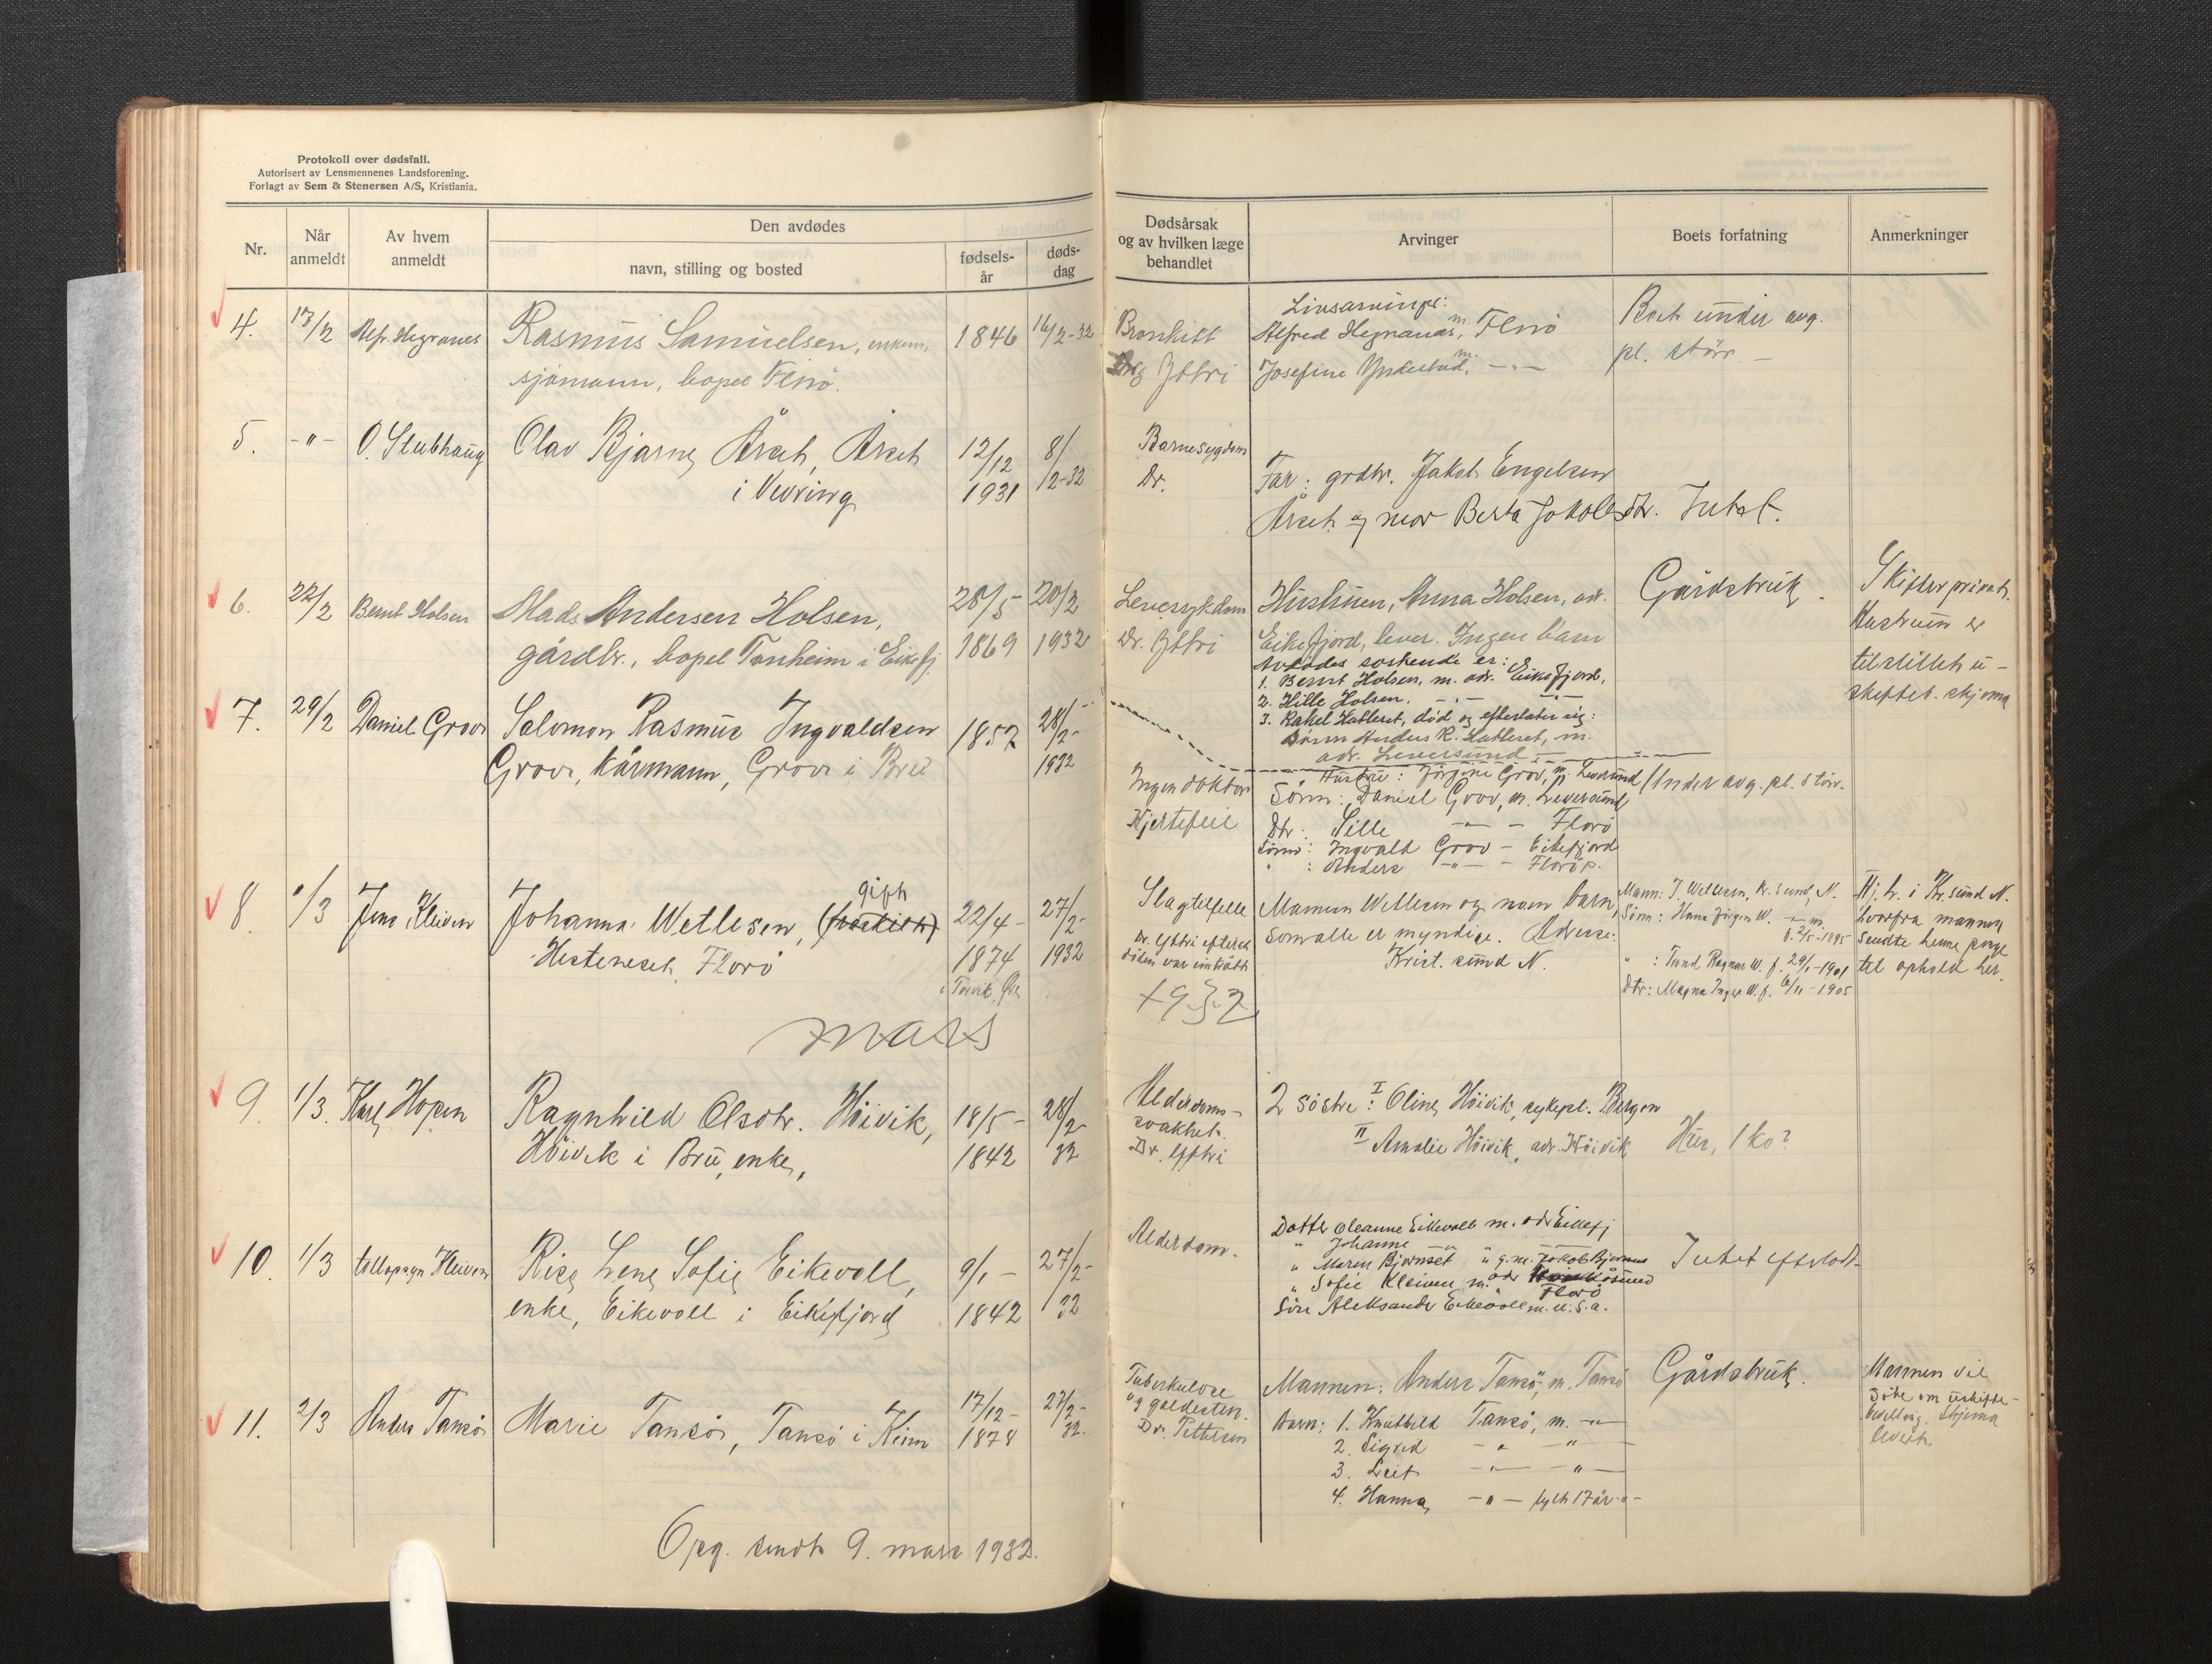 Protokoll over dødsfall.
Autorisert av Lensmennenes Landsforening.
Forlagt av Sem & Stenersen A/S, Kristiania.
Nr.
Når anmeldt
Av hvem anmeldt
Den avdødes
navn, stilling og bosted
fødsels-år
døds-dag
Dødsårsak og av hvilken læge behandlet
Arvinger
Boets forfatning
Anmerkninger
4. 17/2 Alfr. Hegranes Rasmus Samuelsen, enkem. 1846 16/2-32
sjømann, bopel Florø.
Bronkitt
Dr. Yttri
Livsarvinger:
Alfred Hegranes, m. Florø
Josefine Yndestad, m. -"-
Boet under avg.
pl. størr. -
5. -"- O. Stubhaug Olav Bjarne Årset, Årset 12/12 8/2-32
i Vevring 1931
Barnesygdom
Dr.
Far: grdbr. Jakob Engelsen
Årset og mor Berta Jakobsdtr. Intet.
6. 22/2 Bernt Holsen Mads Andersen Holsen, 28/5 20/2
gårdbr., bopel Tonheim i Eikefj. 1869 1932
Leversykdom
Dr. Yttri
Hustruen, Anna Holsen, adr.
Eikefjord, lever. Ingen barn
Avdødes søskende er:
1. Bernt Holsen, m. adr. Eikefjord.
2. Hille Holsen. -"- -"-
3. Rakel Hatleset, død og efterlater sig:
Sønn Anders R. Hatleset, m.
adr. Leversund
Gårdsbruk.
Skifter privat.
Hustruen er
tilstillet u-
skiftet. skjema
7. 29/2 Daniel Grov Salomon Rasmus Ingvaldsen 1857 28/2-
Grov, kårmann, Grov i Bru 1932
Ingen doktor
Hjertefeil
Hustru: Jørgine Grov, m. Leversund
Sønn: Daniel Grov, m. Leversund
Dtr: Sille -"- - Florø
Sønn: Ingvald Grov - Eikefjord
" : Anders -"- - Florø p.
Under avg. pl. størr.
8. 1/3 Jens Kleiven Johanna Wetlesen, gift 22/4- 27/2-
Hesteneset, Florø 1874 1932
i Torvik,
Slagtilfelle
Dr. Yttri efterat
døden var inntrådt
Mannen Wetlesen og noen barn,
som alle er myndige. Adresse:
Krist.sund N.
Mann: J. Wetlesen, Kr.sund, N.
Sønn: Hans Jørgen W. -"- m.
f. 2/5-1895
" : Trond Ragnar W. f. 29/1-1901
Dtr: Magna Inger W. f. 6/11-1905
Hj. h. i Kr.sund N.
hvorfra mannen
sendte henne penge
til ophold her.
mars
1932
9. 1/3. Karl Hopen Ragnhild Olsdtr. Høivik, 18/5- 28/2-
Høivik i Bru, enke, 1842 32
Alderdoms-
svakhet.
Dr. Yttri
2 søstre: I Oline Høivik, sykepl. Bergen
II Amalie Høivik, adr. Høivik
Hus, 1 ko?
10. 1/3 tollopsyn Kleiven Rise Lene Sofie Eikevoll, 9/1- 27/2-
enke, Eikevoll i Eikefjord 1842 32
Alderdom.
Datter Oleanne Eikevoll m. adr Eikefj
" Johanne " "
" Maren Bjørnset " g.m. Jakob Bjørnset
" Sofie Kleiven m. adr
Florø
Søn Aleksander Eikevoll m. U.S.A.
Intet efterlatt
11. 2/3 Anders Tansø Marie Tansø, Tansø i Kinn 17/12- 27/2-
1878 32.
Tuberkulose
og galdesten.
Dr. Pettersen
Mannen: Anders Tansø, m. Tansø
Barn: 1. Knuthild Tansø, m. -"-
2. Sigrid -"- -"-
3. Leif -"- -"-
4. Hanna, -"- fylt 17 år -"-
Gårdsbruk.
Mannen vil
søke om uskifte-
bevilling. Skjema
levert.
Opg. sendt 9. mars 1932.